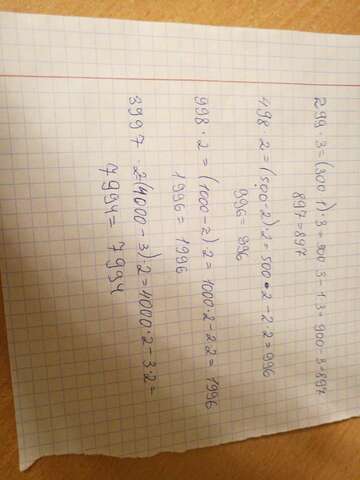 299·3=(300 1)·3=300 3-1·3=900-3=897
897=897
498·2=(500-2)2=500·2-2·2=996
996=996
998·2=(1000-2)2=1000·2-2·2=1996
1996=1996
3997·2(4000-3)·2=4000·2-3·2=
7994=7994